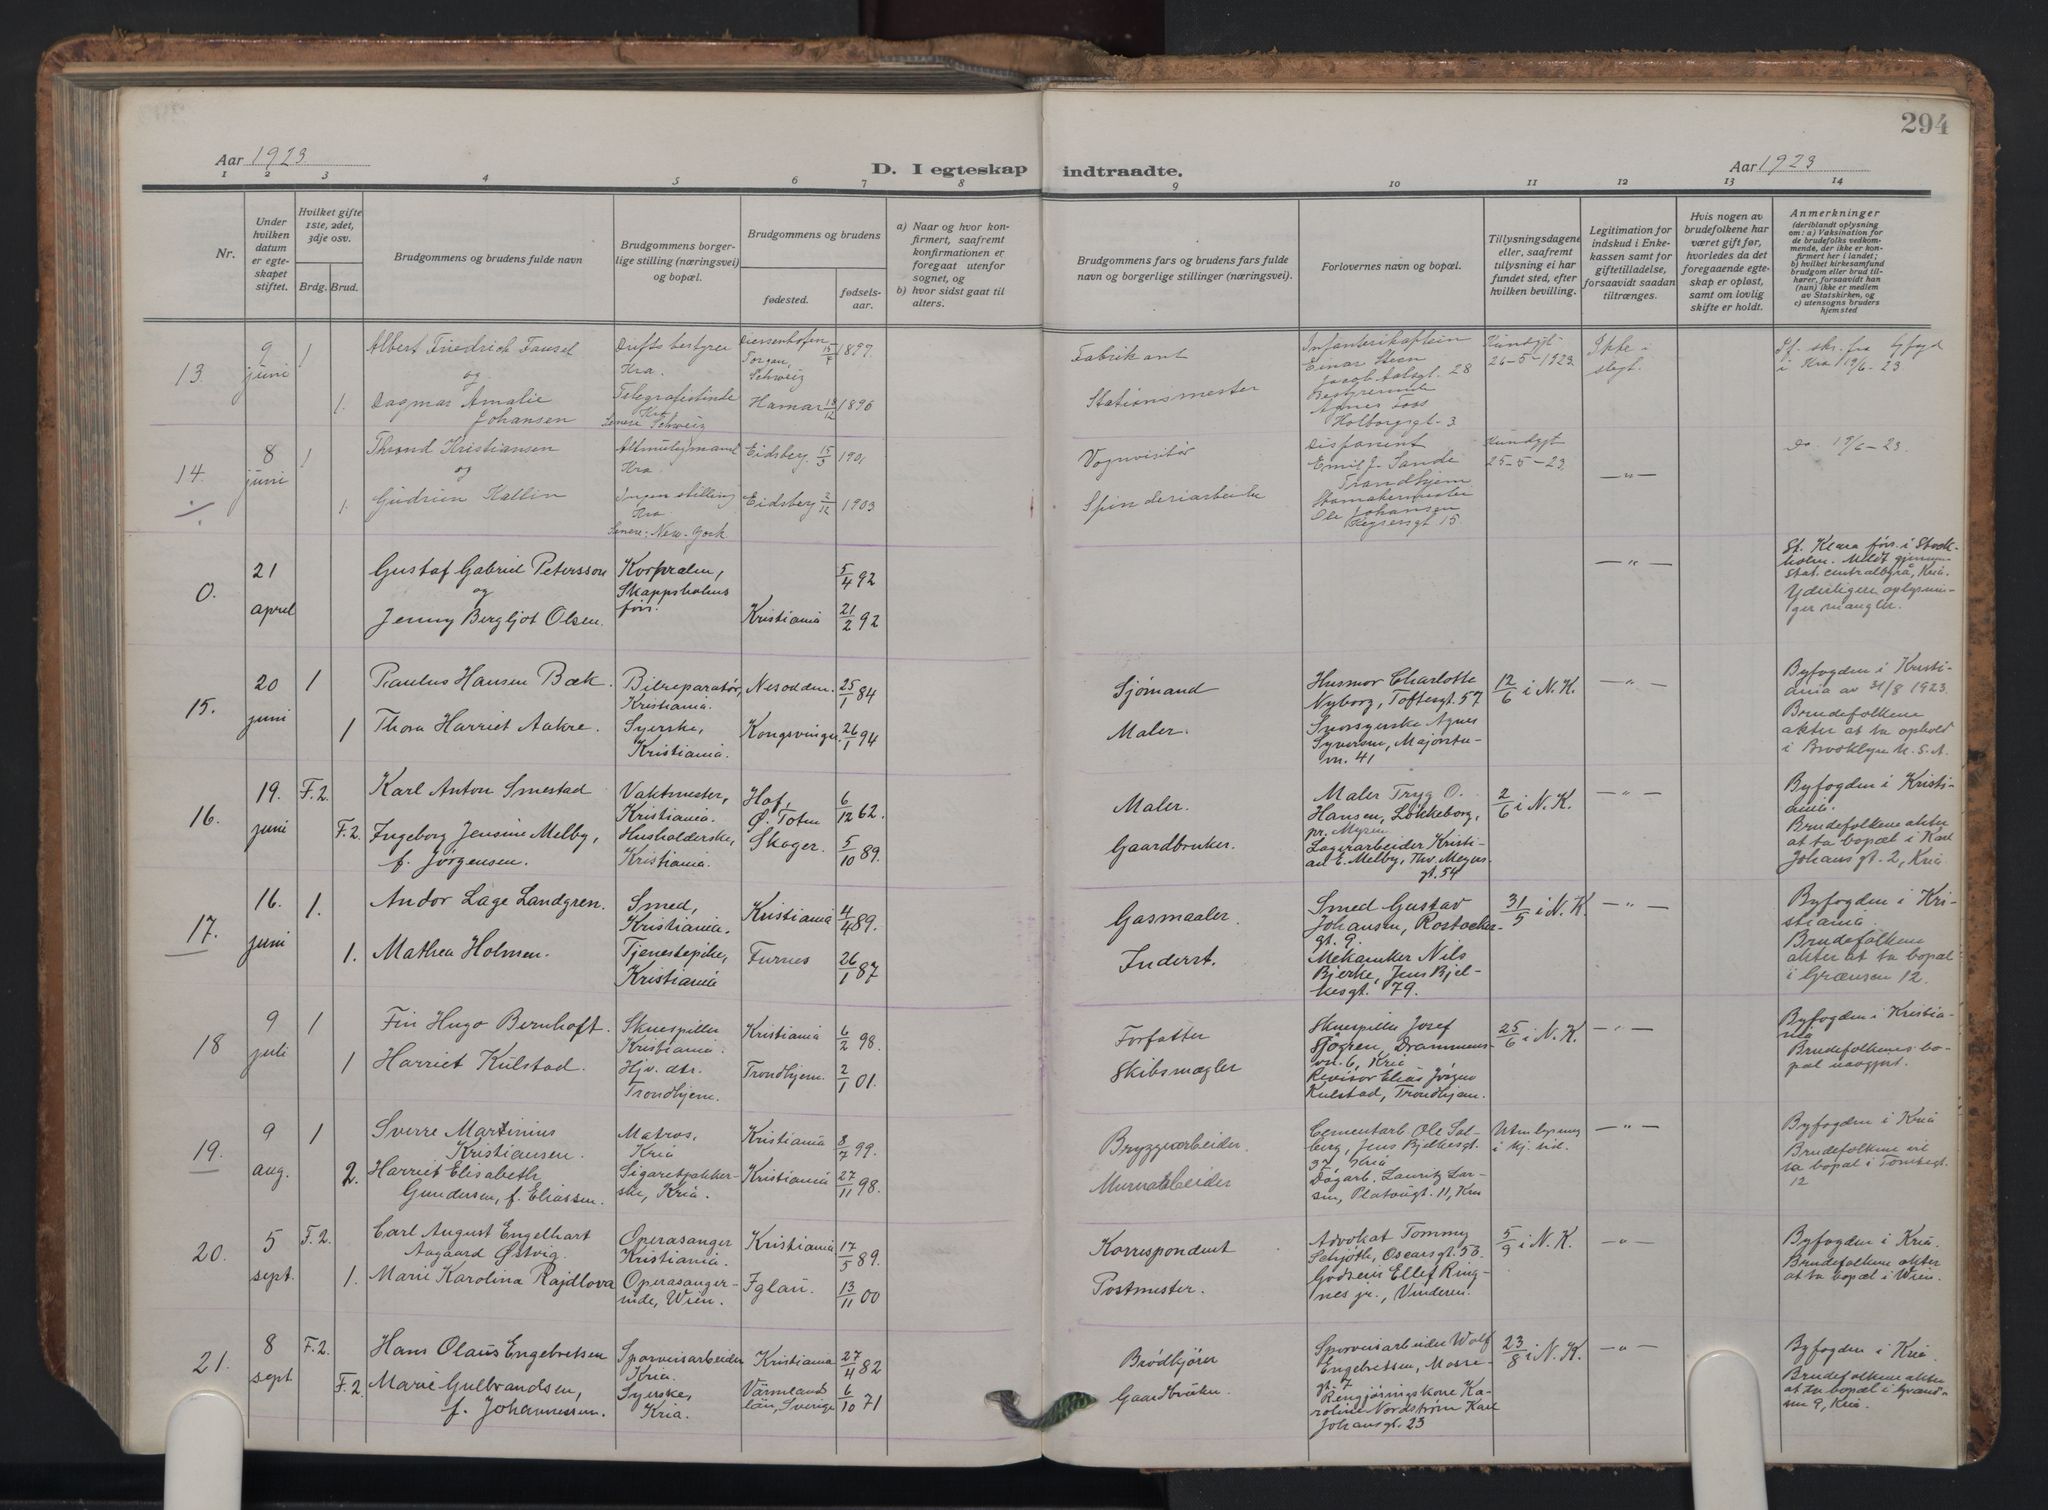 294
Aar 1923.
D. I egteskap indtraadte.
Aar 1923
1 2 3 4 5 6 7 8 9 10 11 12 13 14
Nr.
Under hvilken datum er egteskapet stiftet.
Hvilket gifte 1ste, 2det, 3dje osv.
Brdg. Brud.
Brudgommens og brudens fulde navn
Brudgommens borgerlige stilling (næringsvei) og bopæl.
Brudgommens og brudens
fødested.
fødselsaar.
a) Naar og hvor konfirmert, saafremt konfirmationen er foregaat utenfor sognet, og
b) hvor sidst gaat til alters.
Brudgommens fars og brudens fars fulde navn og borgerlige stillinger (næringsvei).
Forlovernes navn og bopæl.
Tillysningsdagene eller, saafremt tillysning ei har fundet sted, efter hvilken bevilling.
Legitimation for indskud i Enkekassen samt for giftetilladelse, forsaavidt saadan tiltrænges.
Hvis nogen av brudefolkene har været gift før, hvorledes da det foregaaende egteskap er opløst, samt om lovlig skifte er holdt.
Anmerkninger (deriblandt oplysning om: a) Vaksination for de brudefolks vedkommende, der ikke er konfirmert her i landet; b) hvilket kirkesamfund brudgom eller brud tilhører, forsaavidt han (hun) ikke er medlem av Statskirken, og c) utensogns bruders hjemsted
13. 9 juni 1
Albert Friedrich Fausel
og
1. Dagmar Amalie
Johansen
Driftsbestyrer
Kra.
Telegrafistinde
Kra
Senere Schweiz
Schweiz
15/7 1897.
Hamar 18/12 1896
Fabrikant
Stationsmester
Infanterikaptein
Einar Steen
Jacob Aalsgt. 28
Bestyrerinde
Agnes Foss
Holbergsgt. 3
Kundgjt
26-5-1923.
Ikke i
slegt.
i Kra 19/6-23
14. 8 juni 1
Thrond Kristiansen
og
1. Gudrun Kallin
Altmuligmand
Kra
Ingen stilling
Kra
Senere: New-York
Eidsberg 15/3 1901
Eidsberg 2/12 1903
Vognvisitør
Spinderiarbeider
Disponent
Emil J. Sande
Trondhjem
Skomakermester
Ole Johansen
Keysersgt 15
Kundgjt
25-5-23
— " —
Do. 19/6-23.
0. 21 april
Gustaf Gabriel Petersson
og
Jenny Bergljot Olsen.
Korpralen,
Skeppsholms
förs.
5/4 92
Kristiania 21/2 92
— " —
St. Klara förs. i Stock-
holm. Meldt gjennem
stat. centralbyrå, Kria.
Yderligere oplysnin-
ger mangler.
15. 20 juni 1
Paulus Hansen Bæk.
1 Thora Harriet Aakre.
Bilreparatør,
Kristiania.
Syerske,
Kristiania.
Nesodden. 25/1 84
Kongsvinger. 26/1 94
Sjømand
Maler.
Husmor Charlotte
Nyborg, Toftesgt. 57
Snorsyerske Agnes
Syversen, Majorstu-
vn. 41
12/6 i N. K.
— " —
Byfogden i Kristi-
ania av 31/8 1923.
Brudefolkene
akter at ta ophold
i Brooklyn U.S.A.
16. 19. juni F. 2.
Karl Anton Smestad
F. 2. Ingeborg Jensine Melby,
f. Jørgensen.
Vaktmester,
Kristiania.
Husholderske,
Kristiania.
Hof,
Ø. Toten 6/12 62.
Skoger. 5/10 89.
Maler.
Gaardbruker.
Maler Tryg O.
Hansen, Løkkeborg,
pr. Mysen
Lagerarbeider Kristi-
an E. Melby, Thv. Meyers
gt. 54
2/6 i N. K.
— " —
Byfogden i Kristi-
ania.
Brudefolkene akter
at ta bopæl i Karl
Johans gt. 2, Kria.
17. 16. juni 1.
Andor Lage Landgren.
1. Mathea Holmen.
Smed,
Kristiania.
Tjenestepike,
Kristiania
Kristiania 4/4 89.
Furnes 26/1 87
Gasmaaler.
Inderst.
Smed Gustav
Johansen, Rostocker-
gt. 9.
Mekaniker Nils
Bjerke, Jens Bjel-
kesgt. 79.
31/5 i N. K.
— " —
Byfogden i Kri-
stiania.
Brudefolkene
akter at ta bopæl
i Grænsen 12.
18 9 juli 1
Fin Hugo Bernhoft.
1 Harriet Kulstad.
Skuespiller
Kristiania.
Hjv. dtr.
Trondhjem.
Kristiania 6/2 98.
Trondhjem. 2/1 01.
Forfatter
Skibsmægler
Skuespiller Josef
Sjøgren, Drammens-
vn. 6, Kria
Revisor Elias Jørgen
Kulstad, Trondhjem.
25/6 i N. K.
— " —
Byfogden i Kristia-
nia
Brudefolkenes bo-
pæl uavgjort.
19. 9 aug. 1
Sverre Martinius
Kristiansen.
2. Harriet Elisabeth
Gundersen, f. Eliassen.
Matros,
Kria
Sigaretpakker-
ske, Kria.
Kristiania 8/7 99.
Kristiania 27/11 98.
Bryggearbeider.
Murarbeider
Cementarb. Ole Sol-
berg, Jens Bjelkesgt.
37, Kria
Dagarb. Lauritz Lar-
sen, Platousgt. 11, Kria
Uten lysning
— " —
Byfogden i Kria
Brudefolkene vil
ta bopæl i Tomtegt.
12
20. 5 sept. F. 2.
Carl August Engelhart
Aagaard Østvig.
1. Marie Karolina Rajdlova
Operasanger
Kristiania.
Operasanger-
inde, Wien.
Kristiania 17/5 89.
Iglau. 13/11 00
Korrespondent
Postmester.
Advokat Tommy
Schjøth, Oscarsgt. 53.
Godseier Ellef Ring-
nes jr., Vinderen.
5/9 i N. K.
— " —
Byfogden i Kria.
Brudefolkene akter
at ta bopæl i Wien.
21. 8 sept F. 2.
Hans Olaus Engebretsen
F. 2. Marie Gulbrandsen,
f. Johannessen.
Sporveisarbeider
Kria.
Syerske,
Kria.
Kristiania 27/4 82
Värmlands
län, Sverige 6/10 71
Brødkjører
Gaardbruker.
Sporveisarbeider Wolf
Engebretsen, Mosse-
gt. 7
Rengjøringskone Ka-
roline Nordstrøm Karl
Johansgt. 23
23/8 i N. K.
— " —
Byfogden i Kria.
Brudefolkene akter
at ta bopæl i Grænd-
sen 9, Kria.